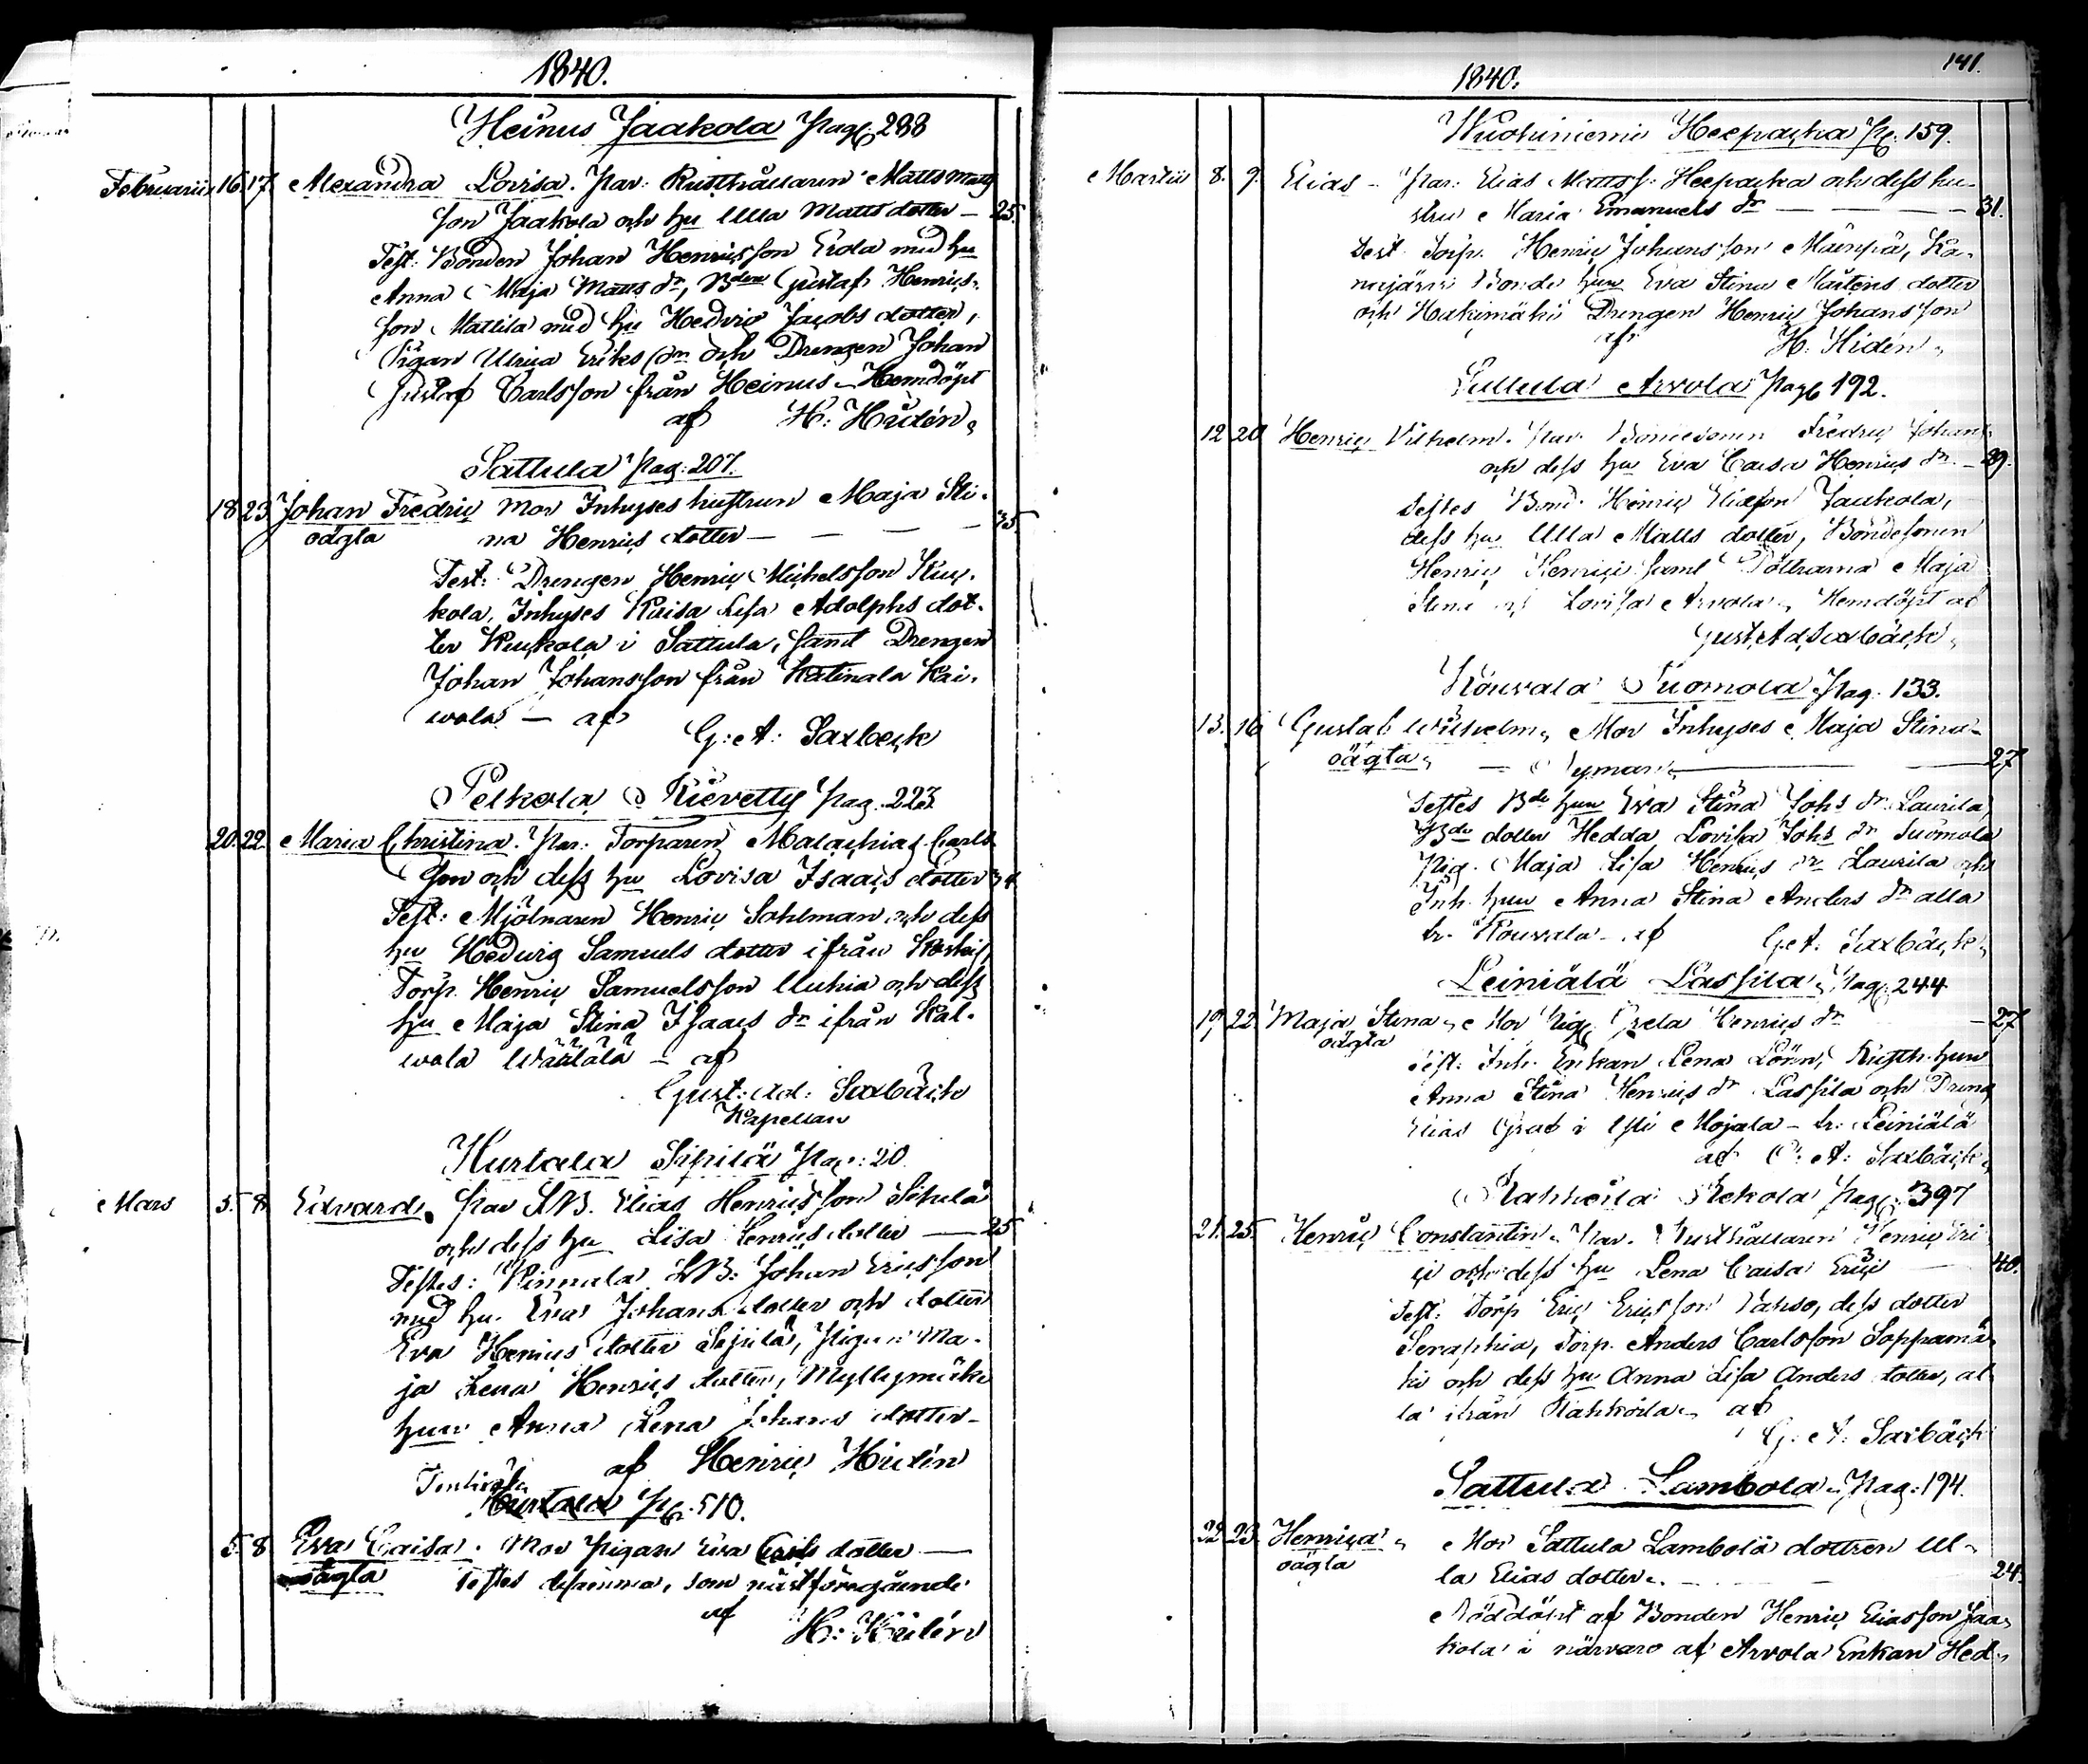 1840.
Heinus Jaakola Pag. 288
Februarii 16. 17. Alexandra Lovisa. Par: Rusthållaren Matts Matts
son Jaakola och hu Ulla Matts dotter — 25.
Test: Bonden Johan Henricsson Erola med hu
Anna Maja Matts dr, Bden Gustaf Henrics
son Mattila med hu Hedvig Jacobs dotter,
Pigan Ulrica Eriks dr och Drengen Johan
Gustaf Carlsson från Heinus. Hemdöpt
af H: Hidén.
Sattula Pag: 207.
18 23 Johan Fredric Mor Inhyses hustrun Maja Sti-
oägta na Henrics dotter — 35
Test: Drengen Henric Michelsson Kuc-
kola, Inhyses Caisa Lisa Adolphs dot-
ter Kuckola i Sattula, samt Drengen
Johan Johansson från Katinala Kai-
wola — af
G: A: Saxbeck
Pelkola Rievetty Pag. 223
20. 22. Maria Christina. Par: Torparen Malachias Carls
son och dess hu Lovisa Isaacs dotter 34
Test: Mjölnaren Henric Sohlman och dess
hu Hedwig Samuels dotter ifrån
Torp. Henric Samuelsson Uuhia och dess
hu Maja Stina Isaacs dr ifrån Kal-
wola — af
Gust: Ad: Saxbäck
Kapellan
Hurtala Sipilä Pag: 20
Mars 5. 8 Edvard. Par Elias Henricsson
och dess hu Lisa Henrics dotter — 25
Testes: Johan Ericsson
med hu. Eva Johans dotter och dotter
Eva Henrics dotter Sipilä, Pigan Ma-
ja Lena Henrics dotter, Myllymäki
hun Anna Lena Johans dotter —
af Henric Hidén
Hurtala Pg. 510.
5. 8 Eva Caisa. Mor Pigan Eva dotter —
oägta Testes desamma, som nästföregående
af
H: Hidén
141.
1840.
Wuohiniemi Heepacka Pg. 159.
Martii 8. 9. Elias — Par: Elias Matts s. Heepacka och dess hu-
stru Maria Emanuels dr — 31.
Test Torp. Henric Johansson Mäenpä, Ka-
najärvi Bonde hun Eva Stina Mårtens dotter
och Hakimäki Drengen Henric Johansson
af H. Hidén.
Lullula Arvola Pag 192.
12 20 Henric Vilhelm. Par Bondesonen Fredric Johans
och dess hu Eva Caisa Henrics dr. — 29.
Testes Bond. Henric Eliasson Jaakola,
dess hu Ulla Matts dotter, Bondesonen
Henric Henrici samt Döttrarna Maja
Stina och Lovisa Arvola. Hemdöpt af
Gust. Ad Saxbäck.
Rouvala Suomola Pag. 133.
13. 16 Gustaf Wilhelm. Mor Inhyses Maja Stina
oägta. — Nyman. — 27
Testes Bde hun Eva Stina Johs dr Laurila,
Bde dotter Hedda Lovisa Johs dr Suomola
Pig. Maja Lisa Henrics dr Laurila och
Inh. hun Anna Stina Anders dr alla
fr. Rouvala. af G. A. Saxbäck.
Leiniälä Lassila. Pag. 244
19 22 Maja Stina. Mor Pig. Greta Henrics dr — 27
oägta
Test: Inh. Enkan Lena Lönn, Rusth. hun
Anna Stina Henrics dr Lassila och Dreng
Elias i Mojala — fr. Leiniälä
af G. A: Saxbäck.
Rahkoila Rekola Pag. 397
21. 25. Henric Constantin. Par. Rusthållaren Henric Eri
ci och dess hu Lena Caisa Erici — 40.
Test: Torp Eric Ericsson, dess dotter
Seraphia, Torp. Anders Carlsson Soppamä-
ki och dess hu Anna Lisa Anders dotter, al-
la ifrån Rahkoila. af
G. A. Saxbäck
Sattula Lambola. Pag: 194.
22 23. Henrica. Mor Sattula Lambola dottren Ul-
oägta la Elias dotter. — 24.
Nöddöpt af Bonden Henric Eliasson Jaa-
kola i närvaro af Arvola Enkan Hed-